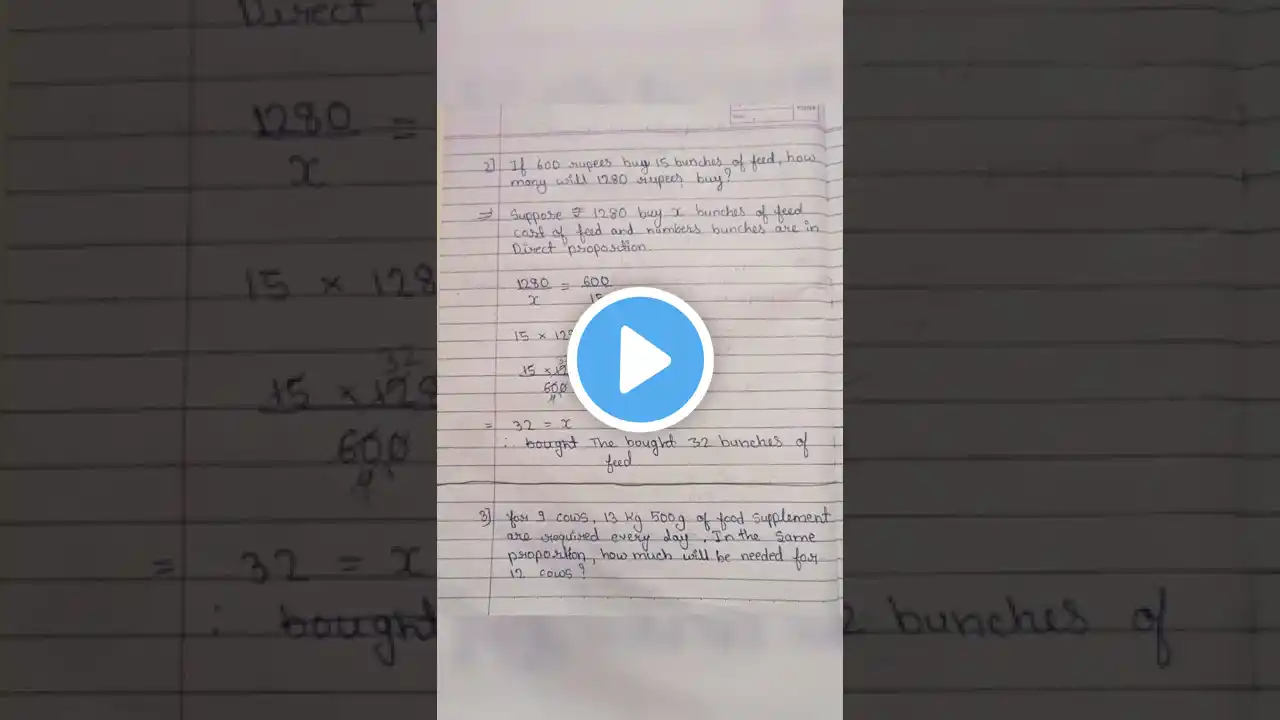 2] If 600 rupees buy 15 bunches of feed, how
many will 1280 rupees buy?
⇒ Suppose ₹ 1280 buy x bunches of feed
cost of feed and numbers bunches are in
Direct proportion.
1280 = 600
x 15
15 × 128
32
15 ×
600
4
= 32 = x
∴ bought The bought 32 bunches of
feed
3] for 9 cows, 13 kg 500g of food supplement
are required every day. In the same
proportion, how much will be needed for
12 cows?
Direct p
1280 =
x
15 × 128
32
15 × 128
600
4
= 32 = x
∴ bought 2 bunches of